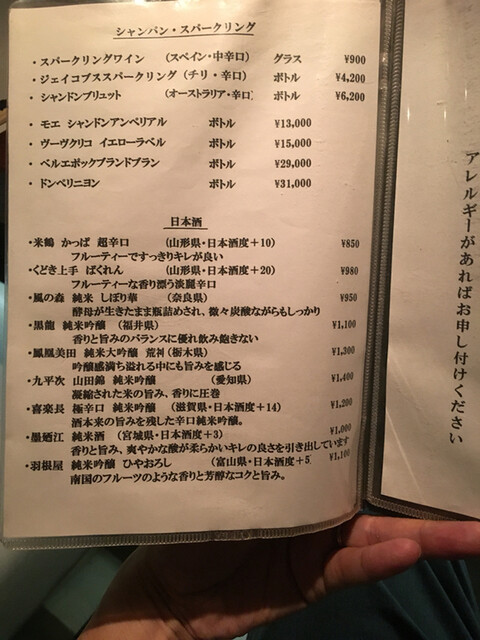 シャンパン・スパークリング
・スパークリングワイン （スペイン・中辛口） グラス ¥900
・ジェイコブススパークリング（チリ・辛口） ボトル ¥4,200
・シャンドンブリュット （オーストラリア・辛口） ボトル ¥6,200
・モエ シャンドンアンペリアル ボトル ¥13,000
・ヴーヴクリコ イエローラベル ボトル ¥15,000
・ベルエポックブランドブラン ボトル ¥29,000
・ドンペリニヨン ボトル ¥31,000
日本酒
・米鶴 かっぱ 超辛口 （山形県・日本酒度＋10） ¥850
フルーティーですっきりキレが良い
・くどき上手 ばくれん （山形県・日本酒度＋20） ¥980
フルーティーな香り漂う淡麗辛口
・風の森 純米 しぼり華 （奈良県） ¥950
酵母が生きたまま瓶詰めされ、微々炭酸ながらもしっかり
・黒龍 純米吟醸 （福井県） ¥1,100
香りと旨みのバランスに優れ飲み飽きない
・鳳凰美田 純米大吟醸 荒神（栃木県） ¥1,300
吟醸感満ち溢れる中にも旨みを感じる
・九平次 山田錦 純米吟醸 （愛知県） ¥1,400
凝縮された米の旨み、香りに圧巻
・喜楽長 極辛口 純米吟醸 （滋賀県・日本酒度＋14） ¥1,200
酒本来の旨みを残した辛口純米吟醸。
・墨廼江 純米酒 （宮城県・日本酒度＋3） ¥1,000
香りと旨み、爽やかな酸が柔らかいキレの良さを引き出しています
・羽根屋 純米吟醸 ひやおろし （富山県・日本酒度＋5 ¥1,100
南国のフルーツのような香りと芳醇なコクと旨み。
アレルギーがあればお申し付けください